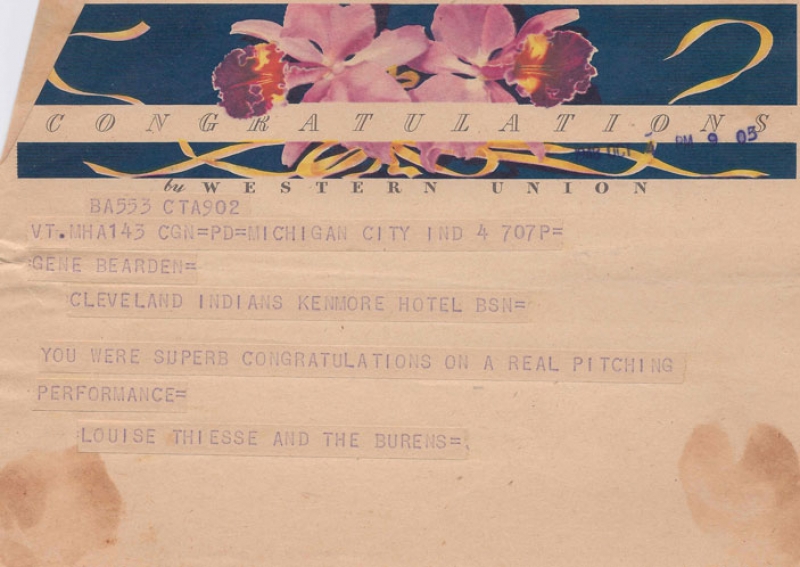 CONGRATULATIONS
PM 9 05
by WESTERN UNION
BA553 CTA902
VT.MHA143 CGN=PD=MICHIGAN CITY IND 4 707P=
GENE BEARDEN=
CLEVELAND INDIANS KENMORE HOTEL BSN=
YOU WERE SUPERB CONGRATULATIONS ON A REAL PITCHING
PERFORMANCE=
LOUISE THIESSE AND THE BURENS=